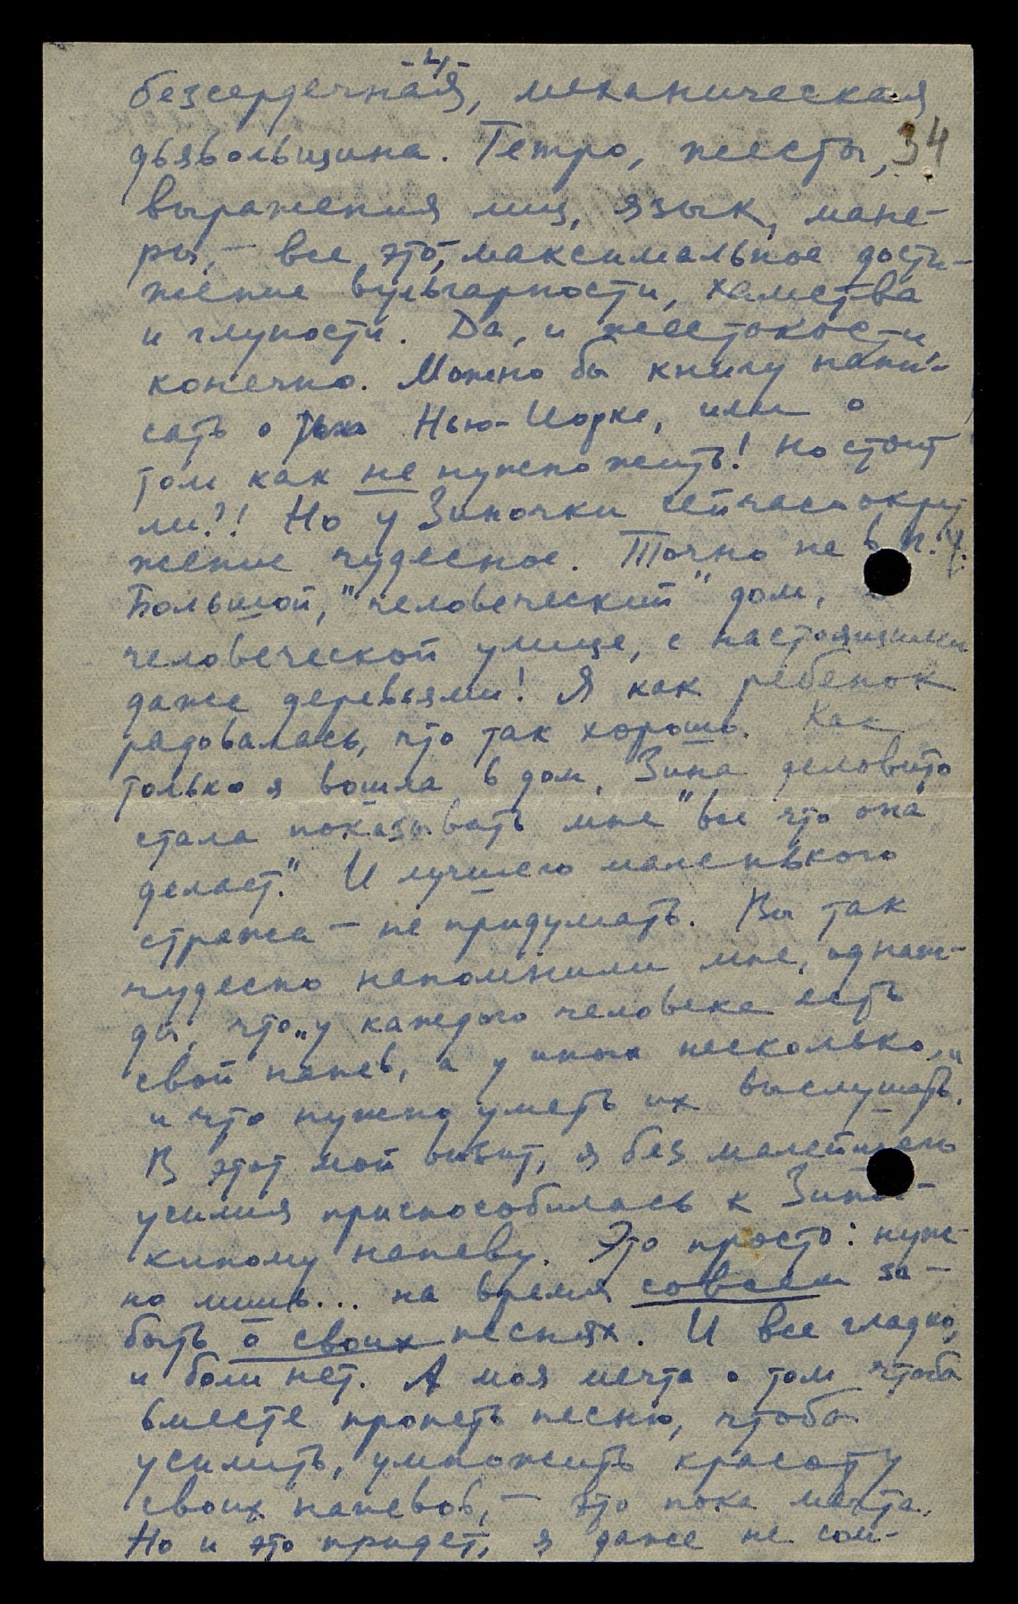 -4-
безсердечная, механическая
дьявольщина. Тетро, жесты, 34
выражения лиц, язык, мане-
ры, — все это, максимальное дости-
жение вульгарности, хамства
и глупости. Да, и жестокости
конечно. Можно бы книгу напи-
сать о Нью-Иорке, или о
том как не нужно жить! Но стоит
ли?! Но у Зиночки сейчас окру-
жение чудесное. Точно не в Н.Й.
Большой, "человеческий" дом,
человеческой улице, с настоящими
даже деревьями! Я как ребенок
радовалась, что так хорошо. Как
только я вошла в дом, Зина деловито
стала показывать мне "все что она
делает." И лучшего маленького
стража — не придумать. Вы так
чудесно напомнили мне, однаж-
ды, что "у каждого человека есть
свой напев, а у иных несколько,"
и что нужно уметь их выслушать.
В этот мой визит, я без малейшего
усилия приспособилась к Зиноч-
киному напеву. Это просто: нуж-
но лишь... на время совсем за-
быть о своих песнях. И все гладко,
и боли нет. А моя мечта о том чтоба
вместе пропеть песню, чтоба
усилить, умножить красоту
своих напевов, — это пока мечта.
Но и это придет, я даже не сом-